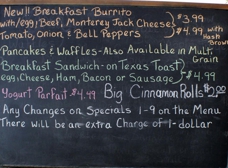 New!! Breakfast Burrito
with/egg, Beef, Monterey Jack Cheese, $3.99
Tomato, Onion, & Bell Peppers $4.99 with Hash Brown
Pancakes & Waffles - Also Available in Multi Grain
Breakfast Sandwich - on Texas Toast
egg, Cheese, Ham, Bacon or Sausage $4.99
Yogurt Parfait $4.49 Big Cinnamon Rolls $2.00
Any Changes on Specials 1-9 on the Menu
There will be an extra Charge of 1-dollar